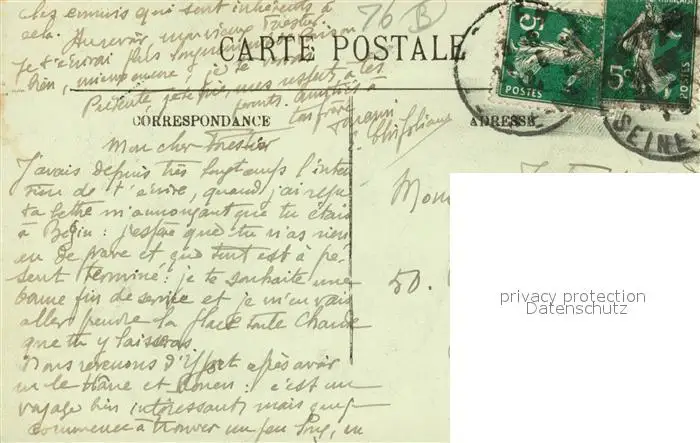 chez ennuis qui sont inhérents à
cela. Au revoir mon vieux Forestier
Je t'écrirai plus longuement
bien, mieux encore, je te
Présente, je te prie, mes respects à tes
parents. Amitiés à
ton frère
CARTE POSTALE
5c
POSTES
5c
SEINE
CORRESPONDANCE
ADRESSE
Mon cher Forestier
J'avais depuis très longtemps l'inten
tion de t'écrire, quand j'ai reçu
ta lettre m'annonçant que tu étais
à Bégin : j'espère que tu n'as rien
eu de grave et que tout est à pré-
sent terminé : je te souhaite une
bonne fin de service et je m'en vais
aller prendre la place toute chaude
que tu y laissas.
Nous revenons d'Yport après avoir
vu le Hâvre et Rouen : c'est un
voyage bien intéressant, mais
commence à trouver un peu long, en
50.
privacy protection
Datenschutz
76 B